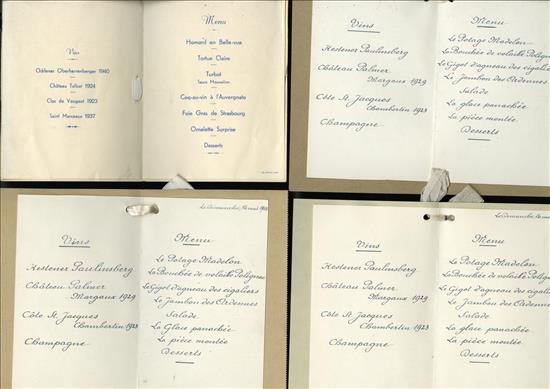 Vins
Ockfener Oberherrenberger 1940
Château Talbot 1924
Clos de Vougeot 1923
Saint Marceaux 1937
Menu
Homard en Belle-vue
Tortue Claire
Turbot
Sauce Mousseline
Coq-au-vin à l'Auvergnate
Foie Gras de Strasbourg
Omelette Surprise
Desserts
Vins
Kestener Paulinsberg
Château Palmer
Margaux 1929
Côte St. Jacques
Chambertin 1923
Champagne
Menu
Le Potage Madelon
La Bouchée de volaille Polignac
Le Gigot d'agneau des eigaliers
Le Jambon des Ardennes
Salade
La glace panachée
La pièce montée
Desserts
Vins
Kestener Paulinsberg
Château Palmer
Margaux 1929
Côte St Jacques
Chambertin 1923
Champagne
Le Dimanche,
Menu
Le Potage Madelon
La Bouchée de volaille Polignac
Le Gigot d'agneau des eigaliers
Le Jambon des Ardennes
Salade
La Glace panachée
La pièce montée
Desserts
Vins
Kestener Paulinsberg
Château Palmer
Margaux 1929
Côte St Jacques
Chambertin 1923
Champagne
Le Dimanche,
Menu
Le Potage Madelon
La Bouchée de volaille Polignac
Le Gigot d'agneau des eigaliers
Le Jambon des Ardennes
Salade
La glace panachée
La pièce montée
Desserts